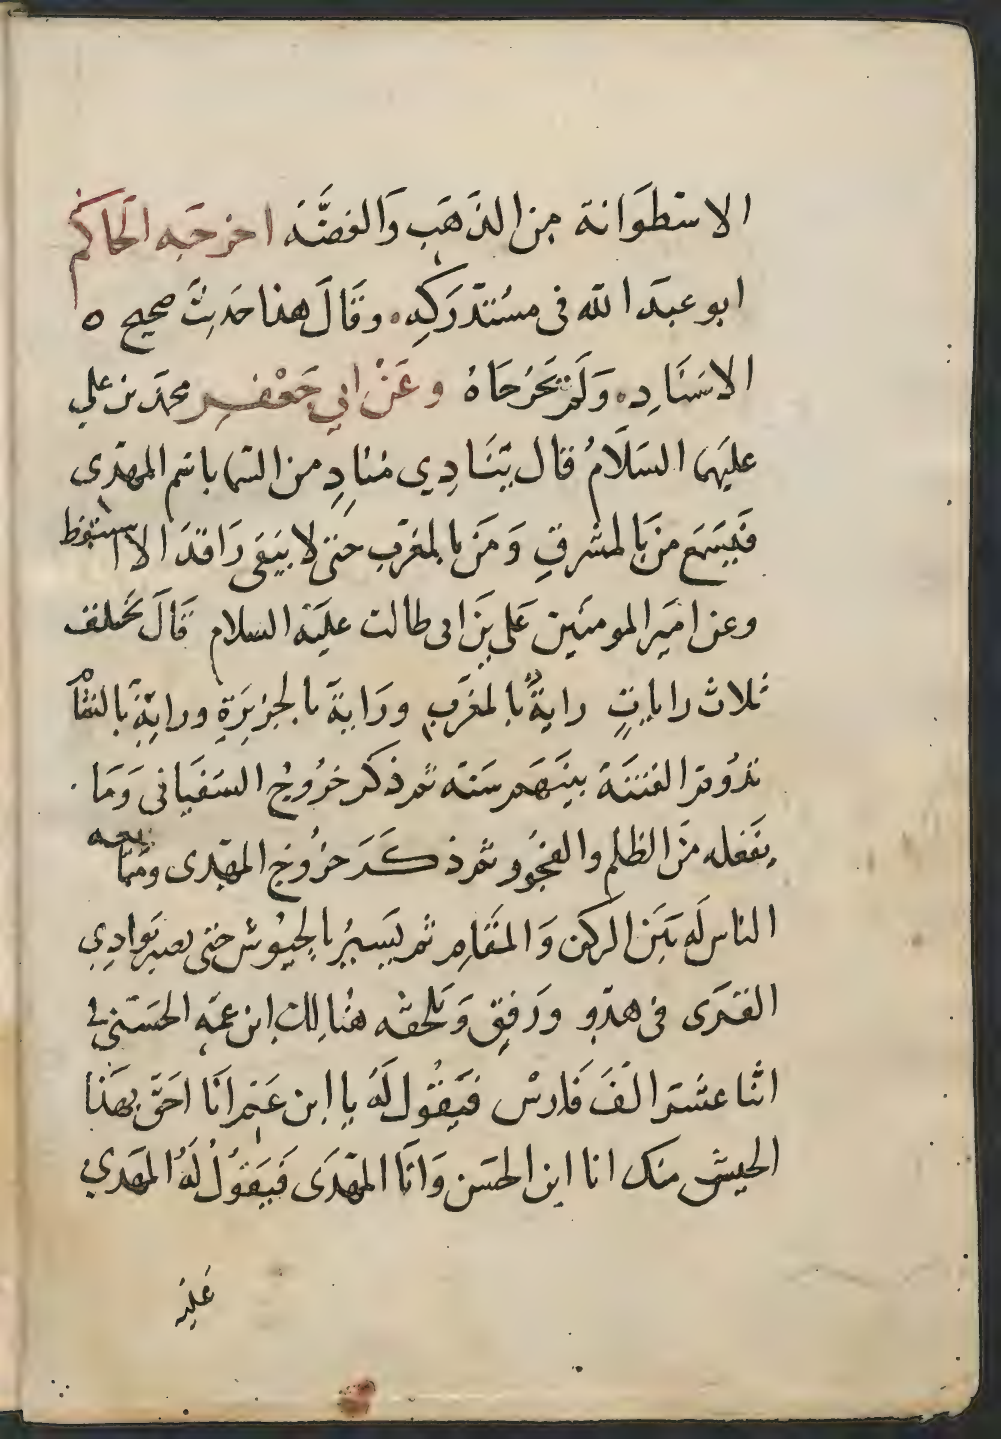 الاسْطوَانة مِن الذهَب وَالفضَّة اخرجَه الحَاكم
ابو عبدَ الله فى مسُتدْرَكِه وقَالَ هذا حَديثَ صحيح ه
الاسنَادِ وَلَم يخَرجَاهُ وعَنْ ابي جَعْفر محمدَ بن علي
عليهما السَلَامُ قال يُنَادِي مُنادِ من السَما باسم المهدى
فَيسَمع منَ بالمشرقِ وَمَن بالمغرب حتى لا يبَقى رَاقدَ الا استيقظ
وعن امَير المومنَين عَلى بنَ ابى طالب عليَه السلام قَالَ تخَلف
ثلاث راياتٍ رايةً بالمغَرب ورَايةَ بالجزيَرَةِ ورايةً بالشَام
تدوُم الفتنَة بينَهم سَنه ثم ذكر خرُوجُ السَفيَانى وَمَا
يفَعله منَ الظلم والفجُور ثم ذكَر خرُوج المهدى ومُبايعه
الناس لَه بَيَن الركن وَالمقَامِ ثم يَسِيرُ بالجيوُش حتى يصير بَوادِي
القرَى فى هدُو ورَفقِ وَيلحقه هنُالِك ابن عمَه الحَسَنى فى
اثنا عشَر الَفَ فَارسْ فيَقوُل لَهُ يا ابن عَم انَا احَقَّ بهَذا
الجيش منك انا ابن الحسَن وَانَا المهْدَى فَيَقوُلُ لَهُ المهَدي
عَليَه